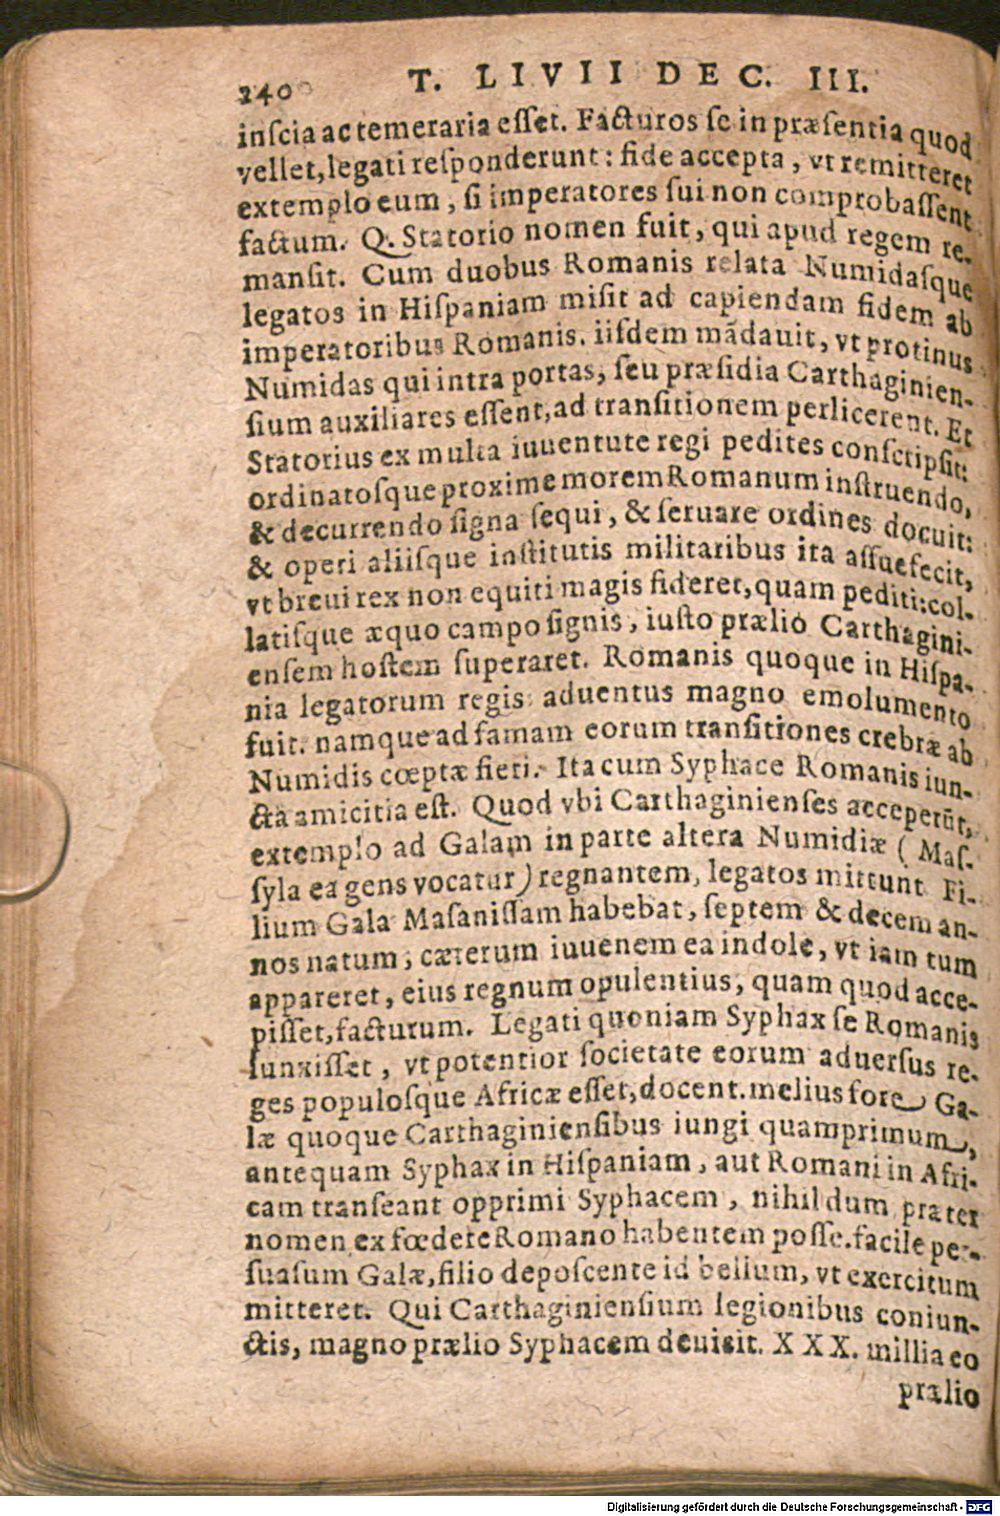 240 T. LIVII DEC. III.
inſcia ac temeraria eſſet. Facturos ſe in præſentia quod
vellet, legati reſponderunt: fide accepta, vt remitteret
extemplo eum, ſi imperatores ſui non comprobaſſent
factum. Q. Statorio nomen fuit, qui apud regem re-
manſit. Cum duobus Romanis relata Numidaſque
legatos in Hiſpaniam miſit ad capiendam fidem ab
imperatoribus Romanis. iiſdem mãdauit, vt protinus
Numidas qui intra portas, ſeu præſidia Carthaginien-
ſium auxiliares eſſent, ad tranſitionem perlicerent. Et
Statorius ex multa iuuentute regi pedites conſcripſit:
ordinatoſque proxime morem Romanum inſtruendo,
& decurrendo ſigna ſequi, & ſeruare ordines docuit:
& operi aliiſque inſtitutis militaribus ita aſſuefecit,
vt breui rex non equiti magis fideret, quam pediti: col-
latiſque æquo campo ſignis, iuſto prælio Carthagini-
enſem hoſtem ſuperaret. Romanis quoque in Hiſpa-
nia legatorum regis aduentus magno emolumento
fuit. namque ad famam eorum tranſitiones crebræ ab
Numidis cœptæ fieri. Ita cum Syphace Romanis iun-
cta amicitia eſt. Quod vbi Carthaginienſes acceperũt,
extemplo ad Galam in parte altera Numidiæ ( Maſ-
ſyla ea gens vocatur) regnantem, legatos mittunt Fi-
lium Gala Maſaniſſam habebat, ſeptem & decem an-
nos natum, cæterum iuuenem ea indole, vt iam tum
appareret, eius regnum opulentius, quam quod acce-
piſſet, facturum. Legati quoniam Syphax ſe Romanis
iunxiſſet, vt potentior ſocietate eorum aduerſus re-
ges populoſque Africæ eſſet, docent. melius fore Ga-
læ quoque Carthaginienſibus iungi quamprimum,
antequam Syphax in Hiſpaniam, aut Romani in Afri-
cam tranſeant opprimi Syphacem, nihil dum præter
nomen ex fœdere Romano habentem poſſe. facile per-
ſuaſum Galæ, filio depoſcente id bellum, vt exercitum
mitteret. Qui Carthaginienſium legionibus coniun-
ctis, magno prælio Syphacem deuicit. XXX. millia eo
prælio
Digitalisierung gefördert durch die Deutsche Forschungsgemeinschaft - DFG